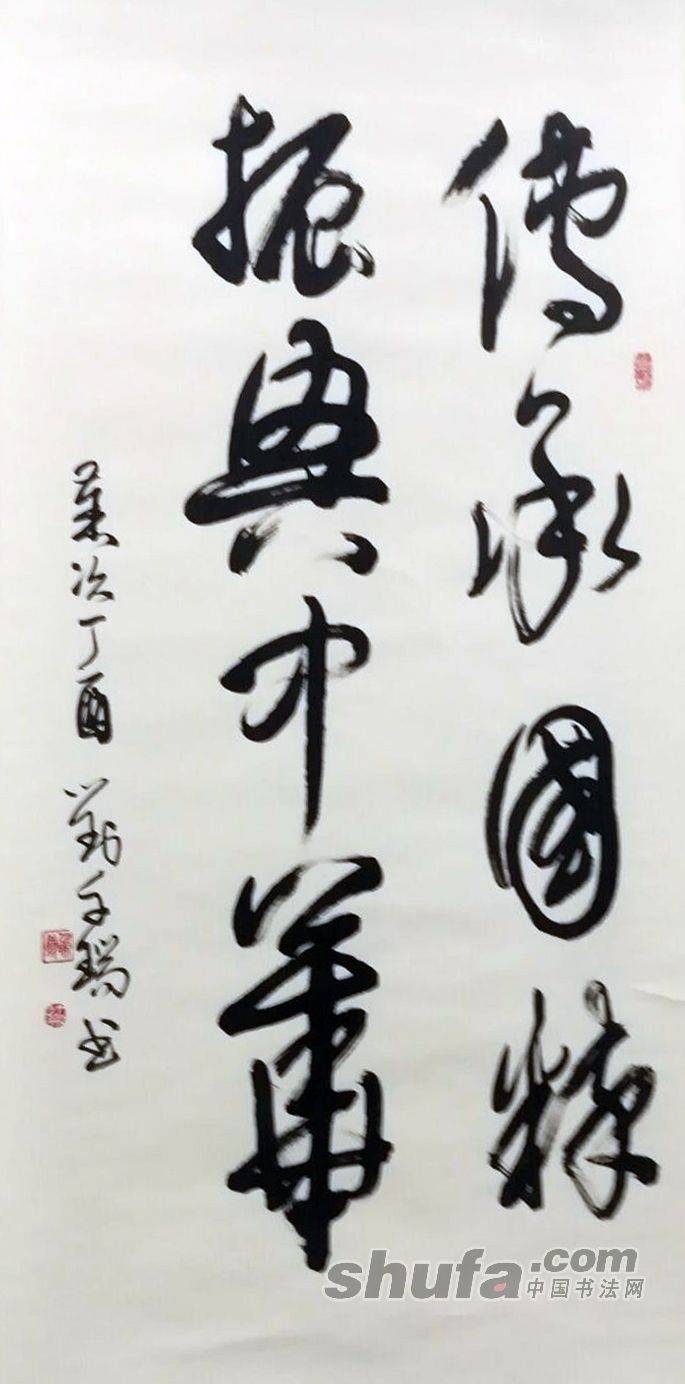 傳承國粹
振興中華
歲次丁酉 劉 书
shufa.com
中国书法网